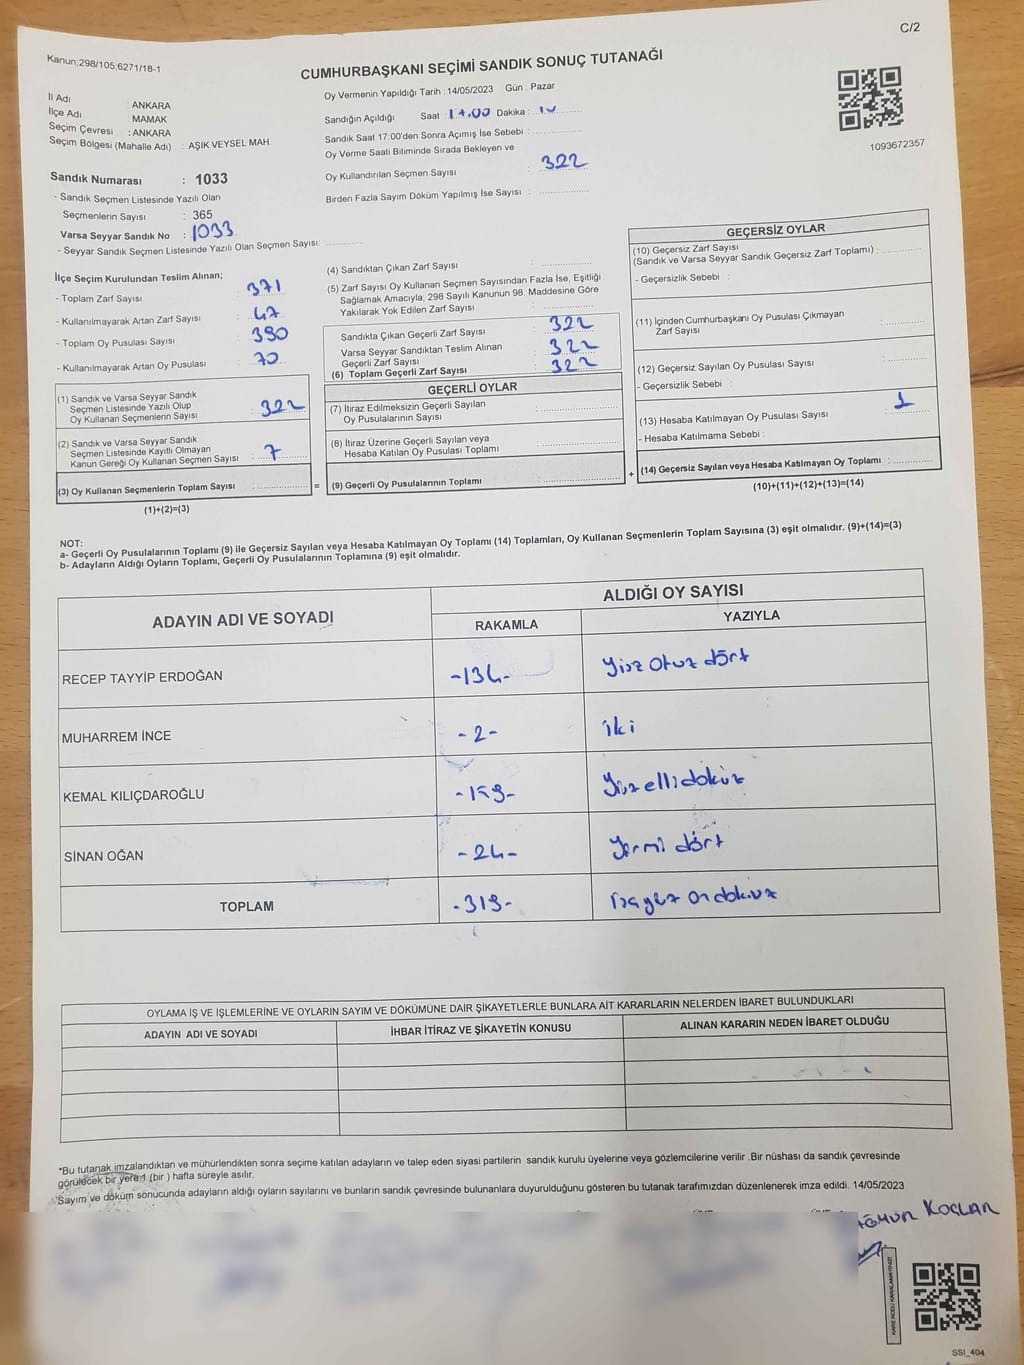 C/2
Kanun;298/105;6271/18-1
CUMHURBAŞKANI SEÇİMİ SANDIK SONUÇ TUTANAĞI
İl Adı : ANKARA
İlçe Adı MAMAK
Seçim Çevresi : ANKARA
Seçim Bölgesi (Mahalle Adı) : AŞIK VEYSEL MAH.
Sandık Numarası : 1033
- Sandık Seçmen Listesinde Yazılı Olan
Seçmenlerin Sayısı : 365
Varsa Seyyar Sandık No : 1033
- Seyyar Sandık Seçmen Listesinde Yazılı Olan Seçmen Sayısı:
Oy Vermenin Yapıldığı Tarih : 14/05/2023 Gün : Pazar
Sandığın Açıldığı Saat : Dakika :
Sandık Saat 17:00'den Sonra Açımış İse Sebebi :
Oy Verme Saati Bitiminde Sırada Bekleyen ve
Oy Kullandırılan Seçmen Sayısı : 322
Birden Fazla Sayım Döküm Yapılmış İse Sayısı :
1093672357
İlçe Seçim Kurulundan Teslim Alınan;
- Toplam Zarf Sayısı : 371
- Kullanılmayarak Artan Zarf Sayısı : 47
- Toplam Oy Pusulası Sayısı : 390
- Kullanılmayarak Artan Oy Pusulası : 70
(1) Sandık ve Varsa Seyyar Sandık
Seçmen Listesinde Yazılı Olup
Oy Kullanan Seçmenlerin Sayısı : 322
(2) Sandık ve Varsa Seyyar Sandık
Seçmen Listesinde Kayıtlı Olmayan
Kanun Gereği Oy Kullanan Seçmen Sayısı : 7
(3) Oy Kullanan Seçmenlerin Toplam Sayısı :
(1)+(2)=(3)
=
(4) Sandıktan Çıkan Zarf Sayısı :
(5) Zarf Sayısı Oy Kullanan Seçmen Sayısından Fazla İse, Eşitliği
Sağlamak Amacıyla, 298 Sayılı Kanunun 98. Maddesine Göre
Yakılarak Yok Edilen Zarf Sayısı :
Sandıkta Çıkan Geçerli Zarf Sayısı : 322
Varsa Seyyar Sandıktan Teslim Alınan
Geçerli Zarf Sayısı : 322
(6) Toplam Geçerli Zarf Sayısı : 322
GEÇERLİ OYLAR
(7) İtiraz Edilmeksizin Geçerli Sayılan
Oy Pusulalarının Sayısı :
(8) İtiraz Üzerine Geçerli Sayılan veya
Hesaba Katılan Oy Pusulası Toplamı :
(9) Geçerli Oy Pusulalarının Toplamı :
+
GEÇERSİZ OYLAR
(10) Geçersiz Zarf Sayısı
(Sandık ve Varsa Seyyar Sandık Geçersiz Zarf Toplamı) :
- Geçersizlik Sebebi :
(11) İçinden Cumhurbaşkanı Oy Pusulası Çıkmayan
Zarf Sayısı :
(12) Geçersiz Sayılan Oy Pusulası Sayısı :
- Geçersizlik Sebebi :
(13) Hesaba Katılmayan Oy Pusulası Sayısı : 1
- Hesaba Katılmama Sebebi :
(14) Geçersiz Sayılan veya Hesaba Katılmayan Oy Toplamı :
(10)+(11)+(12)+(13)=(14)
NOT:
a- Geçerli Oy Pusulalarının Toplamı (9) ile Geçersiz Sayılan veya Hesaba Katılmayan Oy Toplamı (14) Toplamları, Oy Kullanan Seçmenlerin Toplam Sayısına (3) eşit olmalıdır. (9)+(14)=(3)
b- Adayların Aldığı Oyların Toplamı, Geçerli Oy Pusulalarının Toplamına (9) eşit olmalıdır.
ADAYIN ADI VE SOYADI ALDIĞI OY SAYISI
RAKAMLA YAZIYLA
RECEP TAYYİP ERDOĞAN -134- Yüz otuz dört
MUHARREM İNCE -2- iki
KEMAL KILIÇDAROĞLU -159- Yüz elli dokuz
SİNAN OĞAN -24- Yirmi dört
TOPLAM -319- Üçyüz on dokuz
OYLAMA İŞ VE İŞLEMLERİNE VE OYLARIN SAYIM VE DÖKÜMÜNE DAİR ŞİKAYETLERLE BUNLARA AİT KARARLARIN NELERDEN İBARET BULUNDUKLARI
ADAYIN ADI VE SOYADI İHBAR İTİRAZ VE ŞİKAYETİN KONUSU ALINAN KARARIN NEDEN İBARET OLDUĞU
*Bu tutanak imzalandıktan ve mühürlendikten sonra seçime katılan adayların ve talep eden siyasi partilerin sandık kurulu üyelerine veya gözlemcilerine verilir .Bir nüshası da sandık çevresinde
görülecek bir yere 1 (bir ) hafta süreyle asılır.
Sayım ve döküm sonucunda adayların aldığı oyların sayılarını ve bunların sandık çevresinde bulunanlara duyurulduğunu gösteren bu tutanak tarafımızdan düzenlenerek imza edildi. 14/05/2023
KOÇLAR
KARE KODU KARALAMAYINIZ!
SSI_404